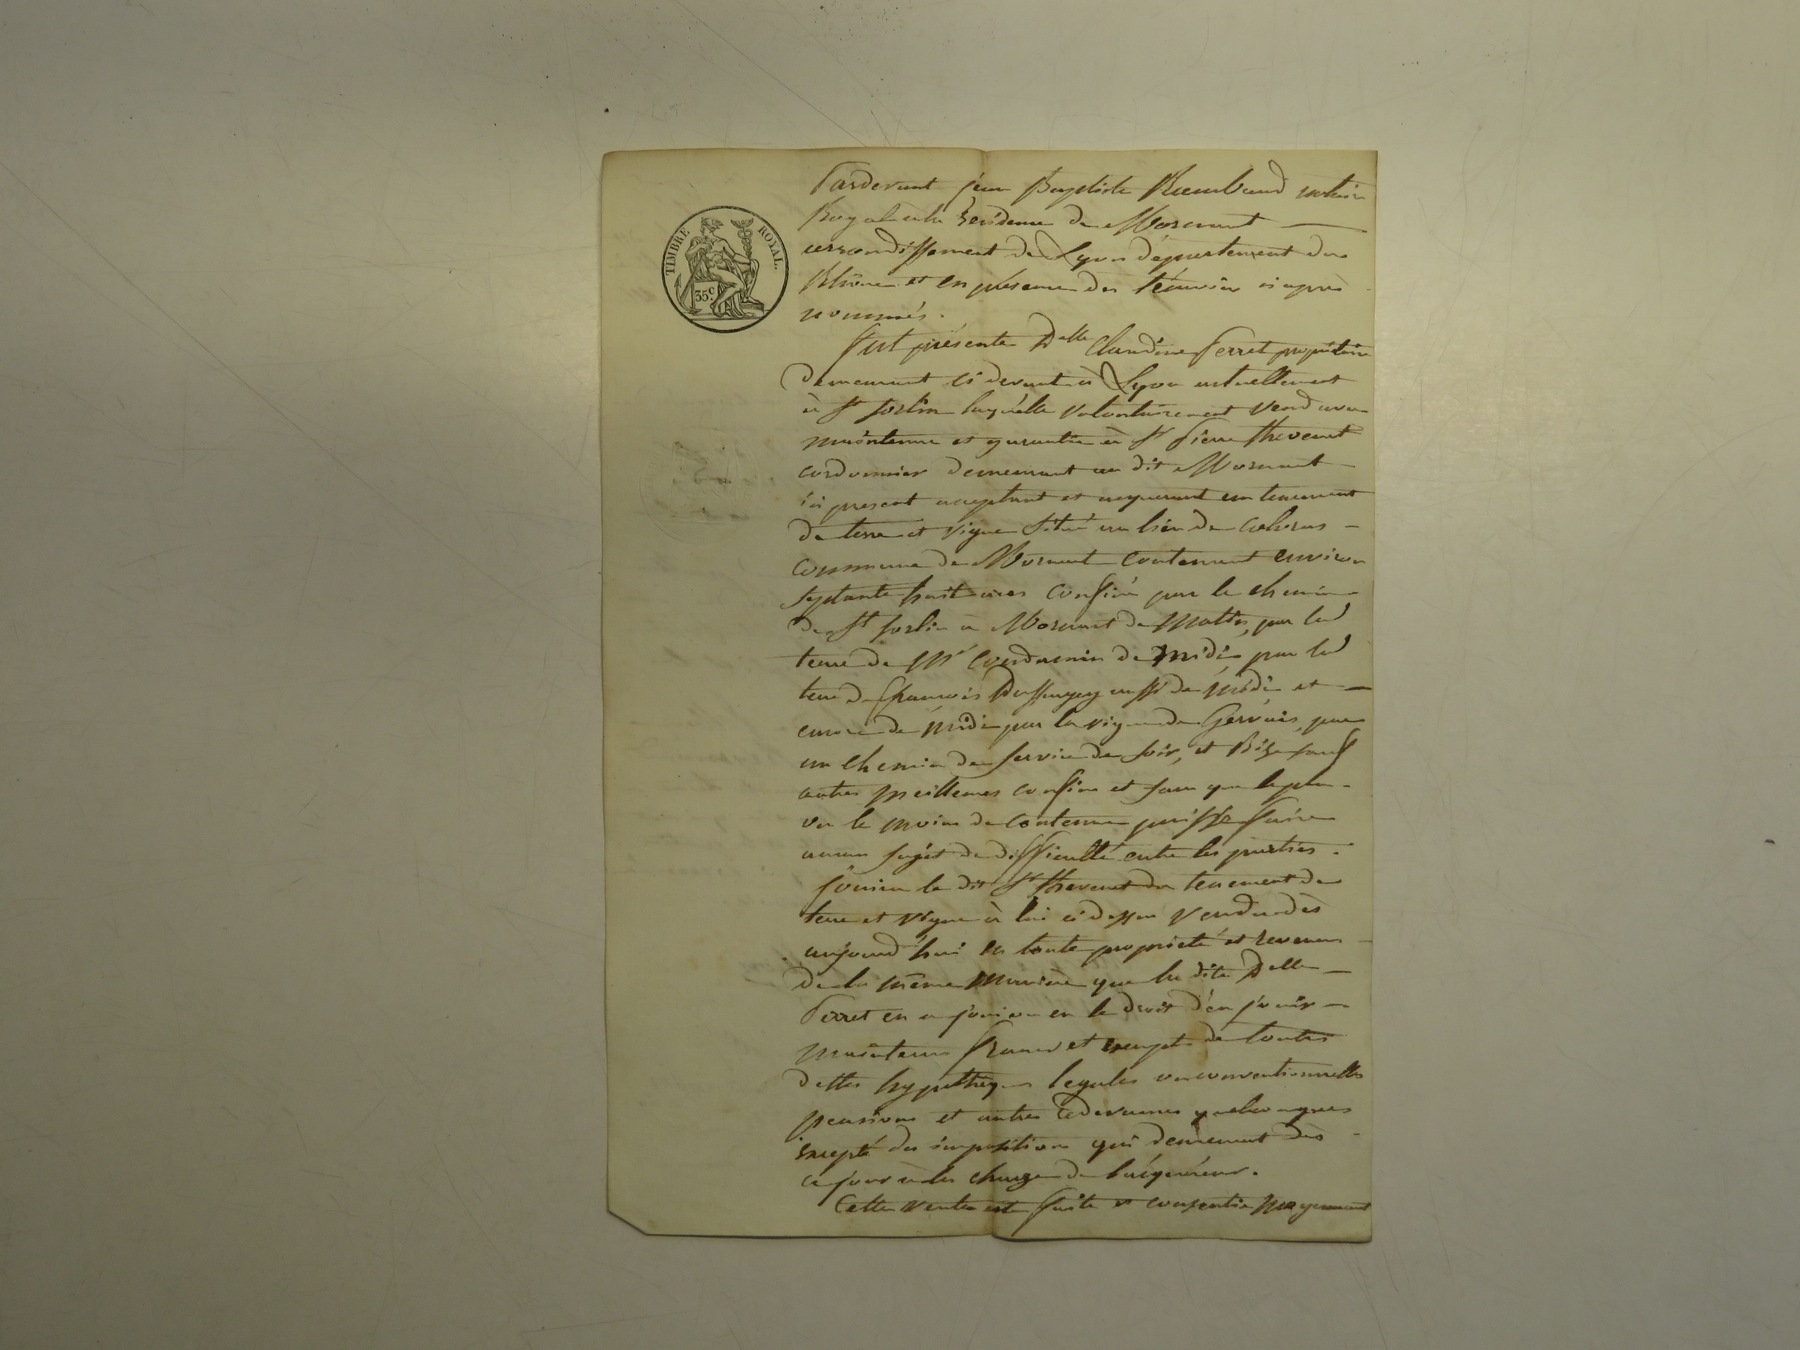 TIMBRE ROYAL.
35c.
Pardevant jean Baptiste Raimbaud notaire
Royal à la Residence de Mornant
arrondissement de Lyon département du
Rhône et en présence des témoins ci après
nommés.
Fut présente Delle Claudine Ferret propriétaire
demeurant ci devant à Lyon actuellement
à St Sorlin laquelle volontairement vend avec
maintenue et garantie à Sr Pierre Thevenet
cordonnier demeurant au dit Mornant
ici present acceptant et acquerant un tenement
de terre et vigne situé au lieu de
commune de Mornant contenant environ
septante huit ares confiné par le chemin
de St Sorlin à Mornant de matin, par la
terre de Mr Condamin de midi, par la
terre de françois aussi de midi et
encore de midi par la vigne de Gervais, par
un chemin de service de soir, et Bize sauf
autres meilleures confins et sans que le plus
ou le moins de contenue puisse faire
aucun sujet de difficulté entre les parties.
Jouira le dit Sr Thevenet du tenement de
terre et vigne à lui ci dessus vendu dès
aujourd'hui en toute propriété et revenus
de la même manière que la dite Delle
Ferret en a joui ou eu le droit d'en jouir
maintenu franc et exempt de toutes
dettes hypothèques legales ou conventionnelles
pensions et autres redevances quelconques
excepté des imposition qui demeurent dès
ce jour à la charge de l'acquéreur.
Cette vente est faite et consentie moyennant